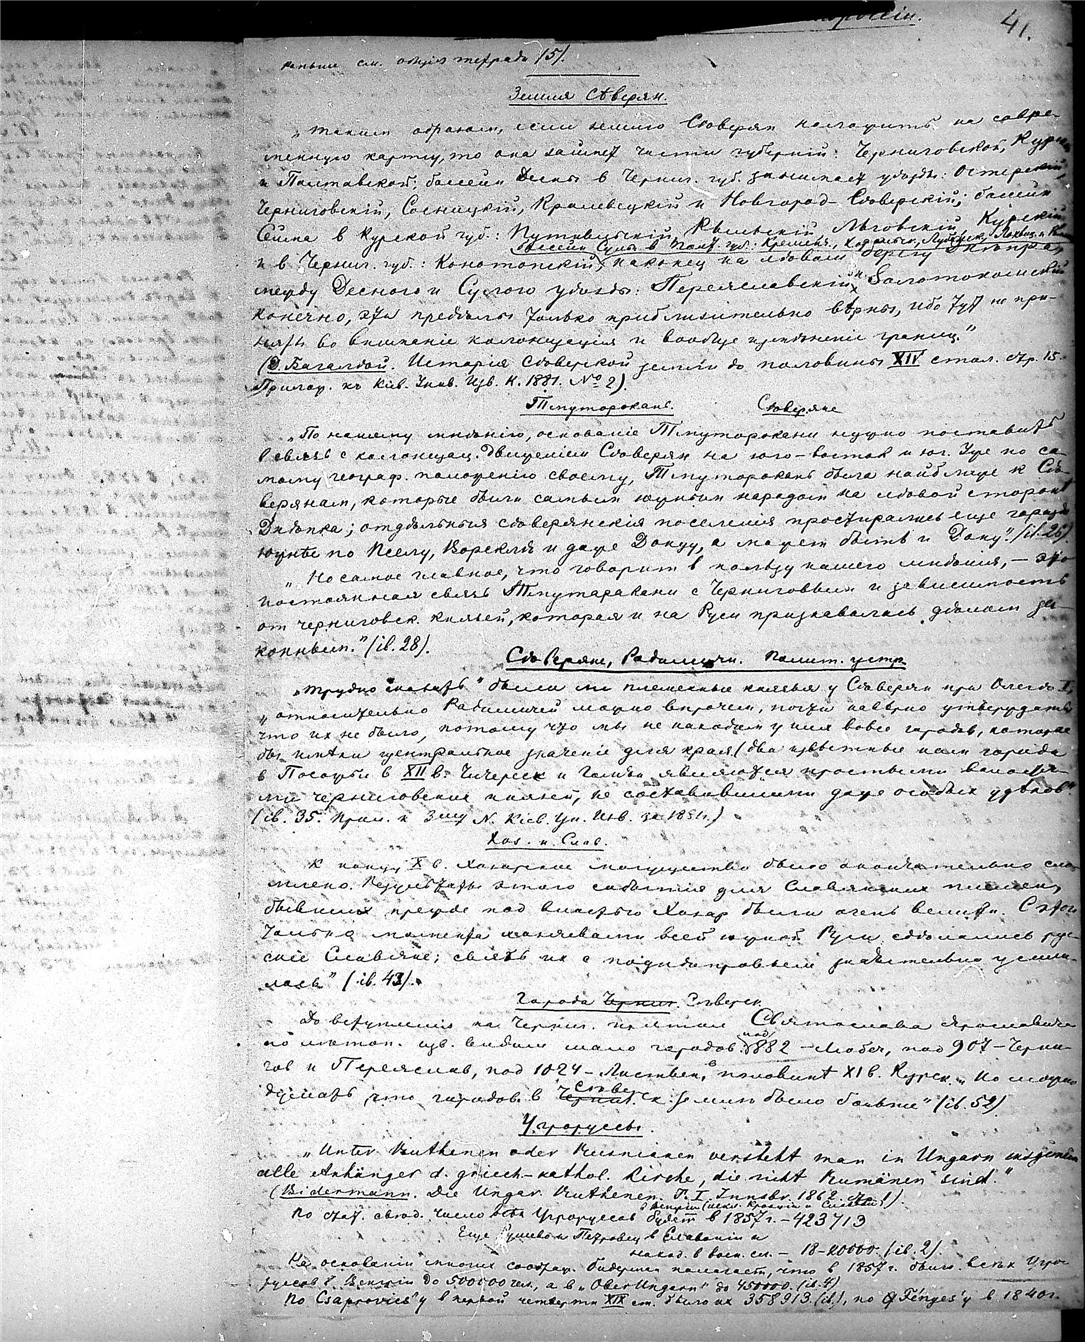 41.
раньше см. общую тетрадь 15).
Земля Сѣверян.
„Таким образом, если землю Сѣверян наложить на совре-
менную карту, то она займет части губерній: Черниговской, Курск.
и Полтавской; бассейн Десны в Черниг. губ. занимает уѣзды: Остерскій
Черниговскій, Сосницкій, Кролевецкій и Новгород-Сѣверскій; бассейн
Сейма в Курской губ.: Путивльскій, Рыльскій, Льговскій, Курскій
бассейн Сулы в Полт. губ.: Кременч., Хорольск., Лубенск., Лохвиц. и
и в Черниг. губ.: Конотопскій; наконец на лѣвом берегу Днѣпра,
между Десною и Сулою уѣзды: Переяславскій и Золотоношскій
конечно, эти предѣлы только приблизительно вѣрны, ибо тут не при-
няты во вниманіе колонизація и вообще измѣненіе границ."
(Д. Багалѣй. Исторія Сѣверской земли до половины XIV стол. стр. 15.
Прилож. къ Кіев. Унив. Изв. К. 1881. № 2).
Тмуторокань. Сѣверяне
„По нашему мнѣнію, основаніе Тмуторокани нужно поставить
в связь с колонизац. движеніем Сѣверян на юго-восток и юг. Уже по са-
мому географ. положенію своему, Тмуторокань была наиближе к Сѣ-
верянам, которые были самым южным народом на лѣвой сторонѣ
Днѣпра; отдѣльныя сѣверянскія поселенія простирались еще гораздо
южнѣе по Пселу, Ворсклѣ и даже Донцу, а может быть и Дону." (ib. 26).
„Но самое главное, что говорит в пользу нашего мнѣнія, — это
постоянная связь Тмутаракани с Черниговым и зависимость
от черниговск. князей, которая и на Руси признавалась дѣлом за-
конным." (ib. 28).
Сѣверяне, Радимичи. Полит. устр.
„Трудно сказать" были ли племенные князья у Сѣверян при Олегѣ
„относительно Радимичей можно впрочем, почти навѣрно утверждать
что их не было, потому что мы не находим у них вовсе городов, которые
бы имѣли центральное значеніе для края (два извѣстные нам города
в Посожьи в XII в. Чичерск и Гомій являются простыми волостя-
ми черниговских князей, не составлявшими даже особых удѣлов"
(ib. 35. Прил. к 3му N. Кіев. Ун. Изв. за 1881 г.)
Хоз. и Слав.
К концу X в. Хозарское могущество было окончательно сло-
млено. Результаты этого событія для Славянских племен,
бывших прежде под властью Хозар были очень велики. С этого
только момента хозяевами всей южной Руси сдѣлались рус-
скіе Славяне; связь их с поднѣпровьем значительно усили-
лась" (ib. 43).
Города Черниг. Сѣверск.
До вступленія на Черниг. престол Святослава Ярославича
по лѣтоп. изв. видим мало городов: под 882 – Любеч, под 907 – Черни-
гов и Переяслав, под 1024 – Листвен, в половинѣ XI в. Курск. „Но можно
думать, что городов в Черниг. Сѣвер-ск. землѣ было больше" (ib. 52)
Угроруссы.
„Unter Ruthenen oder Russniaken versteht man in Ungarn insgemein
alle Anhänger d. griech-kathol. Kirche, die nicht Rumänen sind."
(Bidermann. Die Ungar. Ruthenen. T. I. Innsbr. 1862. стр. 1).
в Венгрии (искл. Кроацiи и Славонiи)
По стат. свод. число всѣх Угроруссов будет в 1857 г. – 423713
Еще в Славоніи и
наход. в воен. сл. – 18-20000. (ib. 2).
На основаніи многих сообщ. Бидерман полагает, что в 1857 г. было всѣх Угро-
руссов в Венгріи до 500000 чел., а в „Ober Ungarn" до 450000. (ib. 4)
По Csaplovics'у в первой четверти XIX ст. было их 358913 (ib.), по Fényes'у в 1840 г.